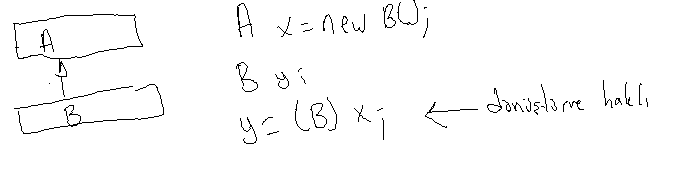 A
B
A x = new B();
B y;
y = (B) x;
dönüştürme hakkı